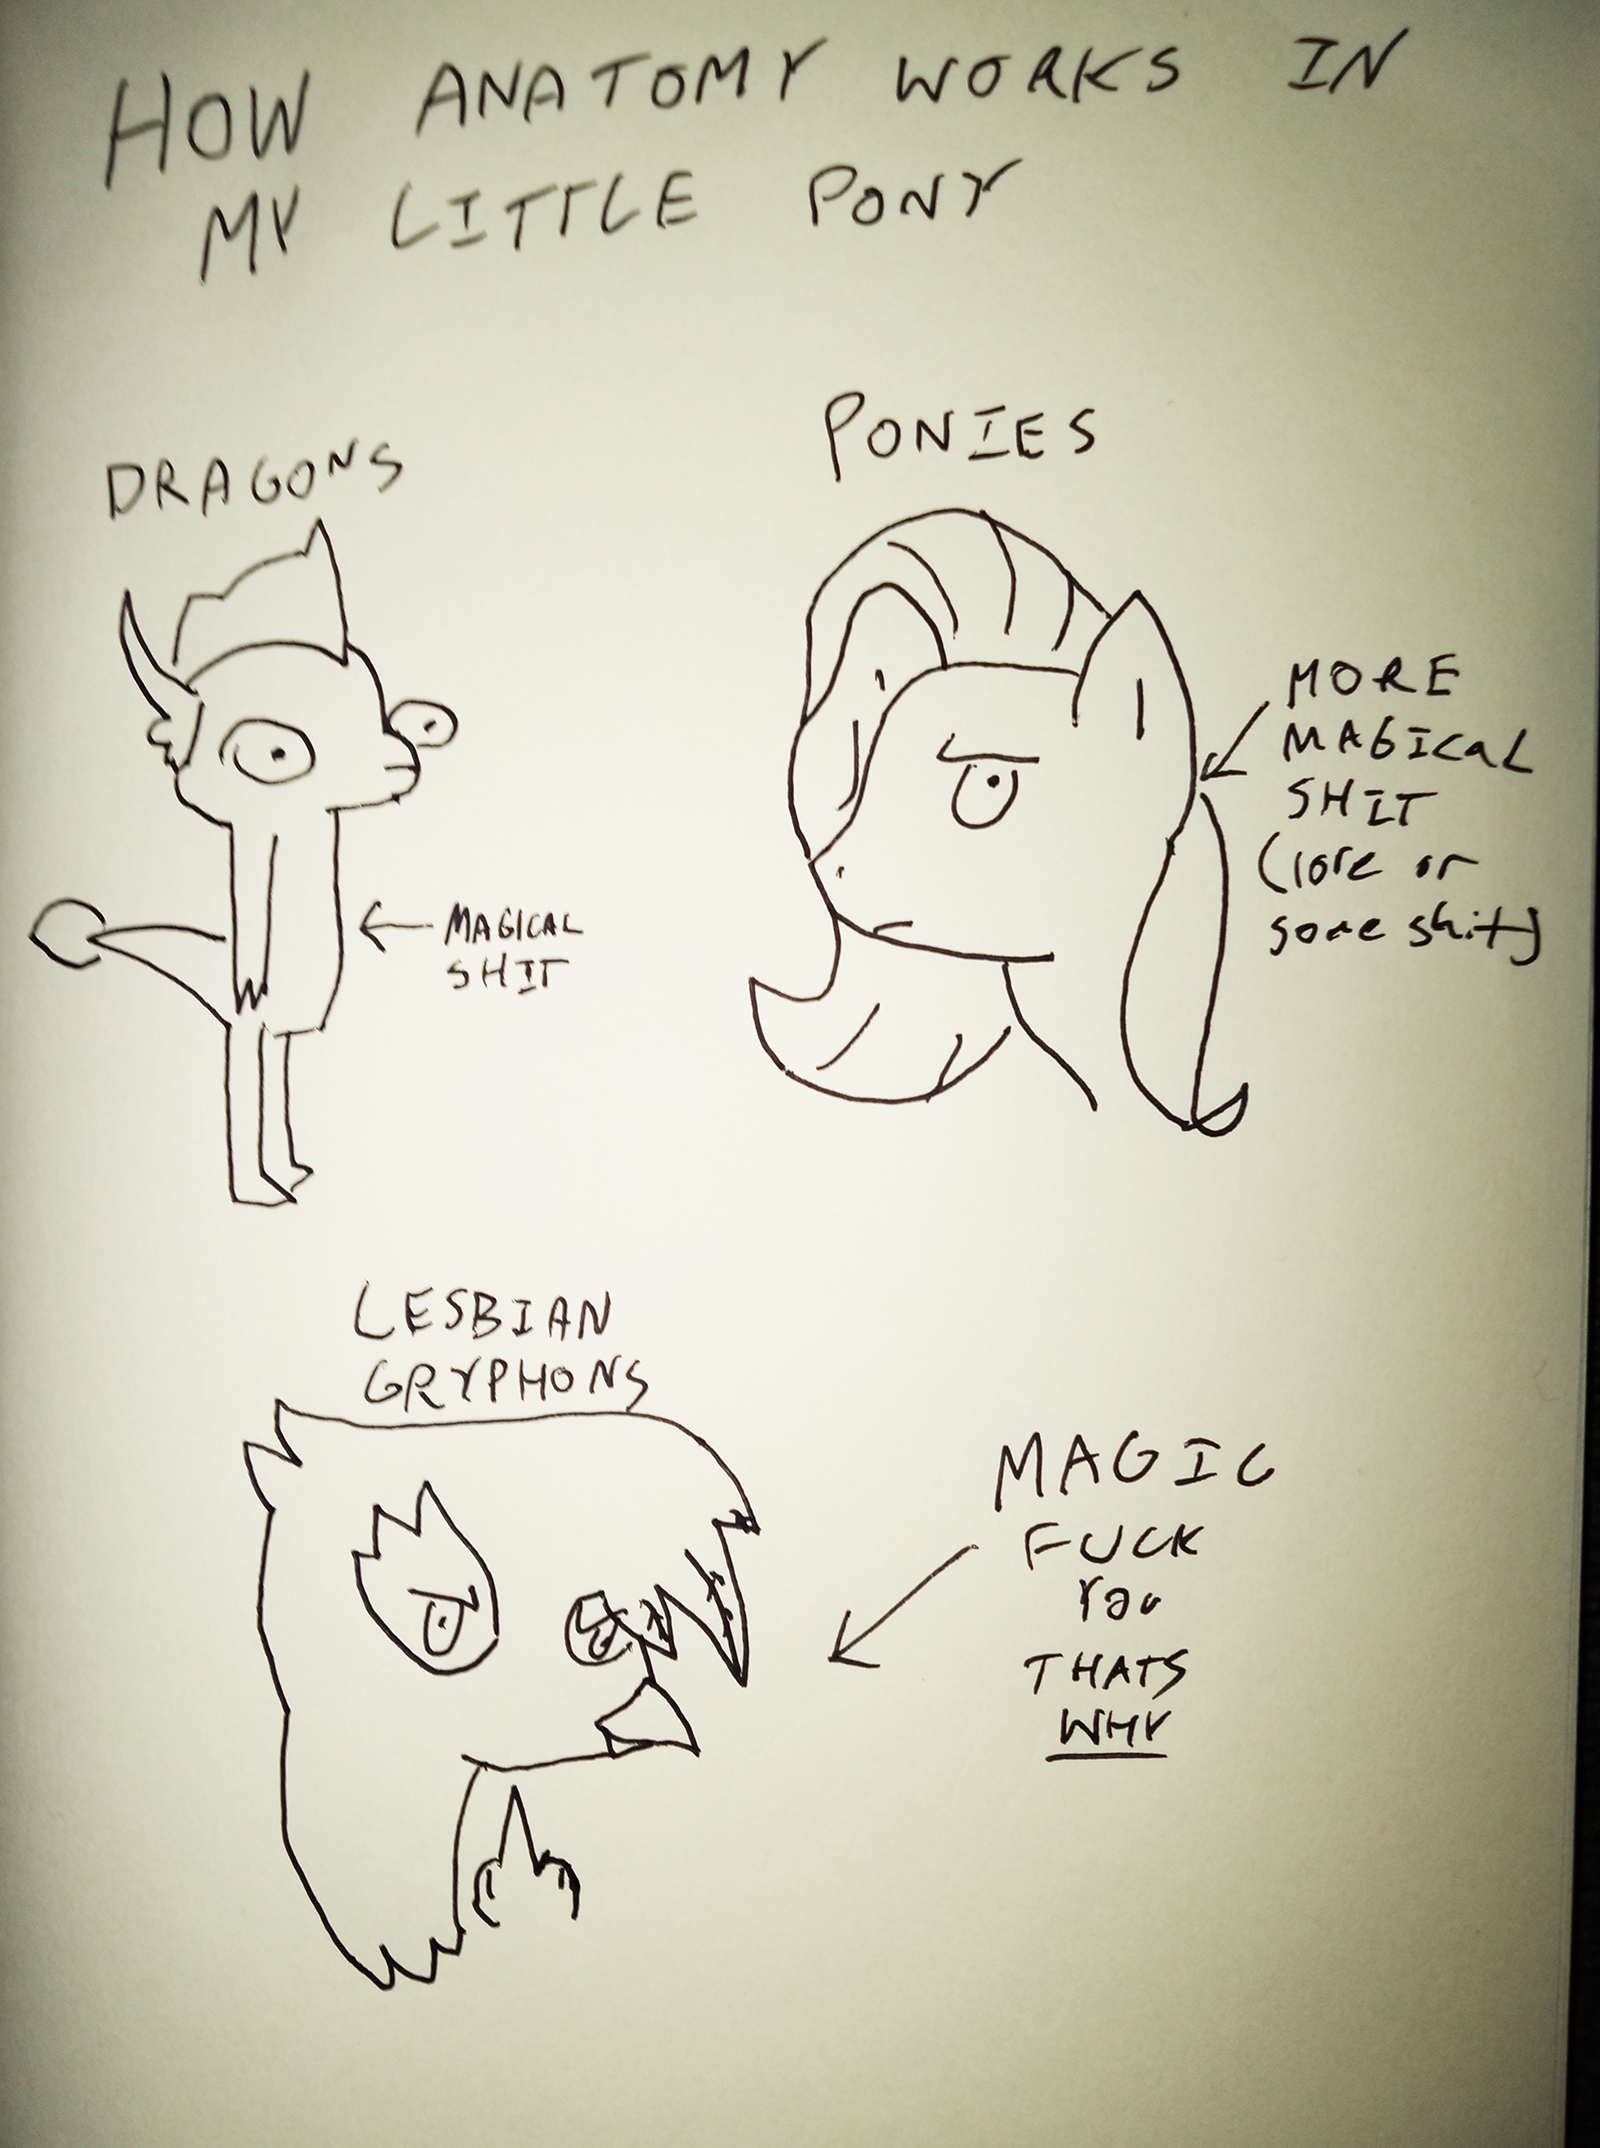 HOW ANATOMY WORKS IN
MY LITTLE PONY
DRAGONS
PONIES
MORE
MAGICAL
SHIT
(lore or
some shit)
MAGICAL
SHIT
LESBIAN
GRYPHONS
MAGIC
FUCK
YOU
THATS
WHY